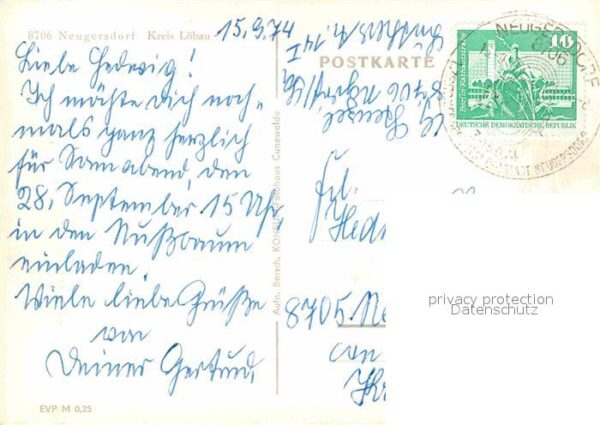 8706 Neugersdorf Kreis Löbau
15.9.74
Liebe Hedwig!
Ich möchte dich noch=
mals ganz herzlich
für Sonnabend, den
28. September 15 Uhr
in den Nußbaum
einladen.
Viele liebe Grüße
von
Deiner Gertrud.
EVP M 0,25
Aufn. Bersch, KONSUM Fotohaus Cunewalde
POSTKARTE
8706
14 I
10
Berlin
DEUTSCHE DEMOKRATISCHE REPUBLIK
NEUGERSDORF
8706
Frl.
Hed
8705 Ne
privacy protection
Datenschutz